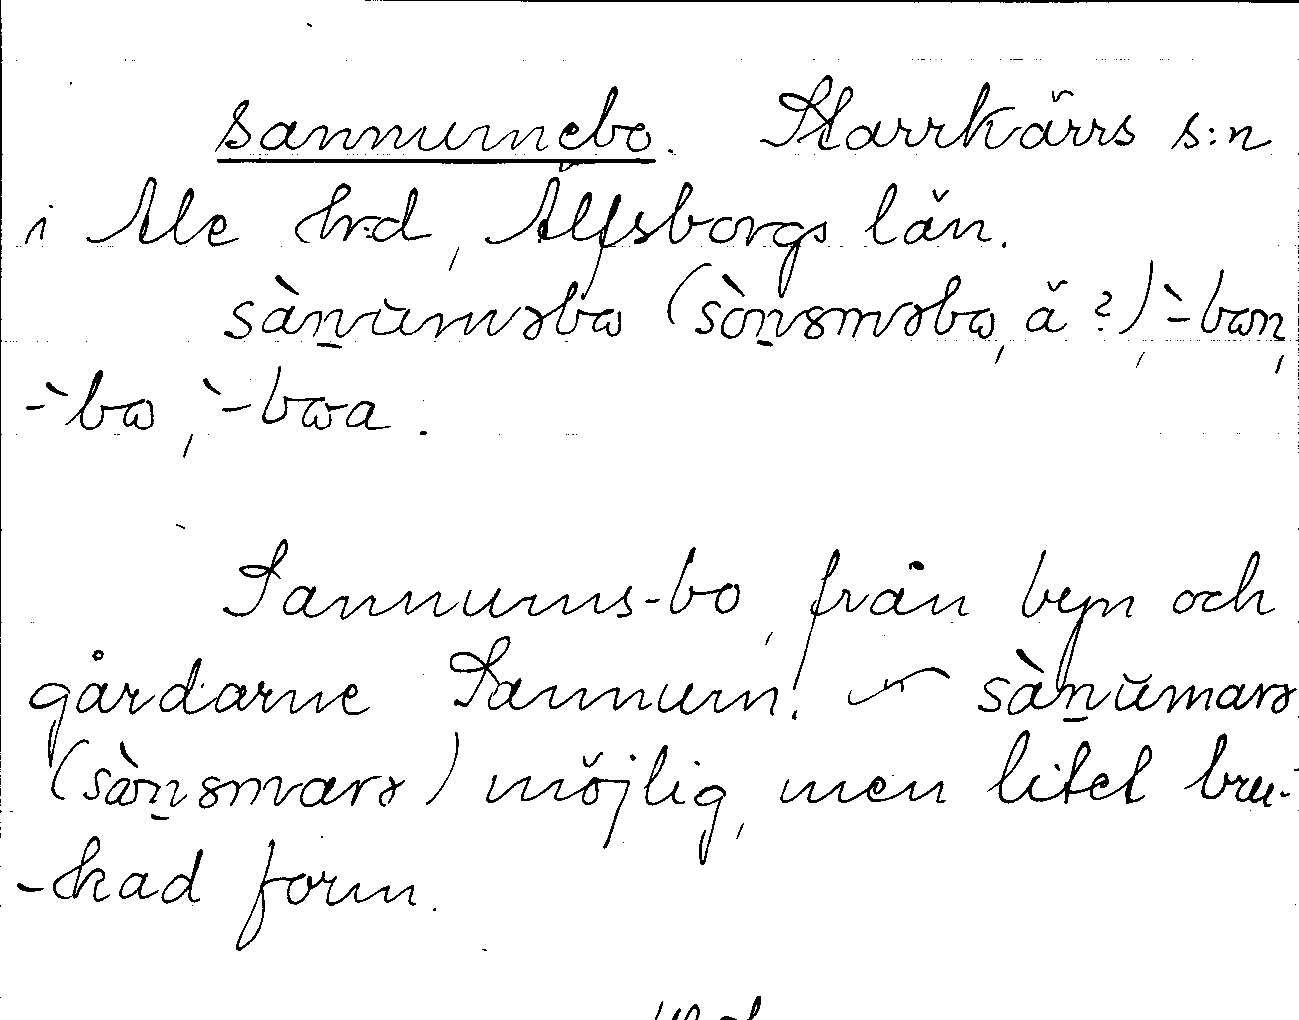 sannumebo. Starrkärrs s:n
i Ale hrd, Älfsborgs län.
sàn̲ŭməbω (sòn̲ɞməbω, ä?), ̀-bωn,
-̀bω, ̀-bωa.
Sannums-bo, från byn och
gårdarne Sannum.
sàn̲ŭmarə
(sòn̲ɞmarə) möjlig, men litet bru-
-kad form.